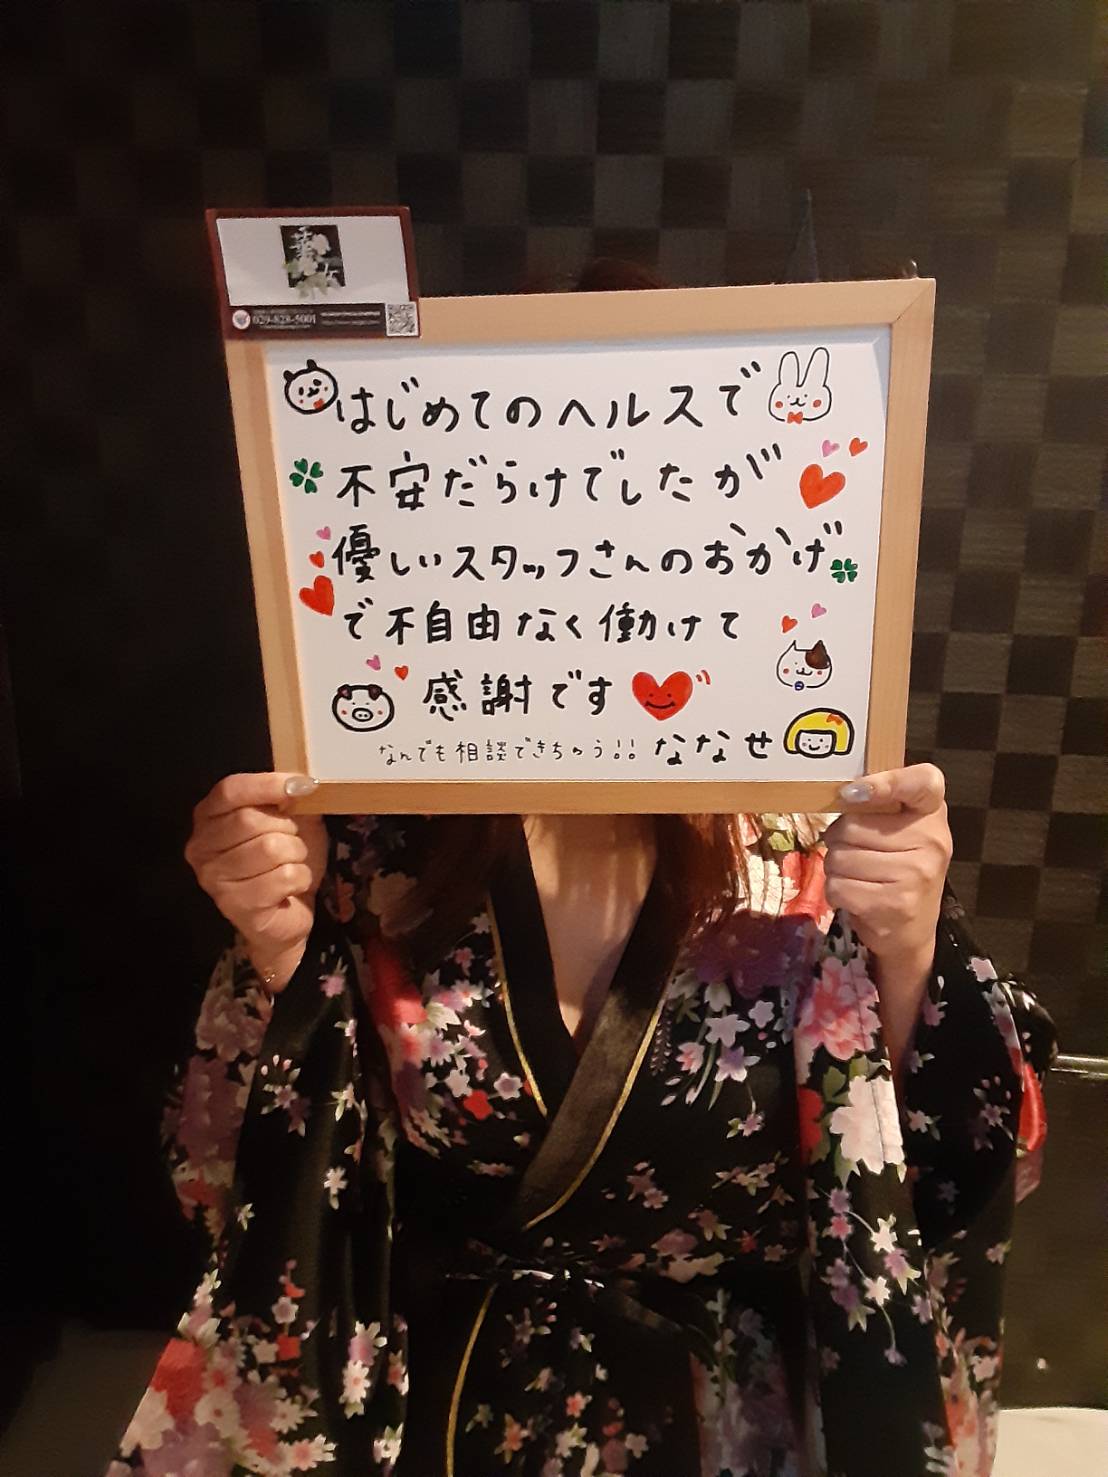 華女
029-828-5001
はじめてのヘルスで
不安だらけでしたが
優しいスタッフさんのおかげ
で不自由なく働けて
感謝です
なんでも相談できちゃう!! ななせ